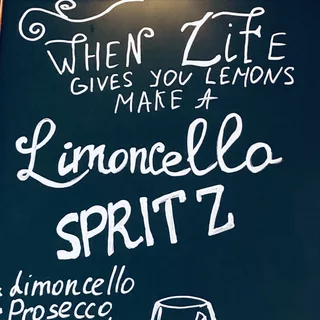 WHEN LiFE
GIVES YOU LEMONS
MAKE A
Limoncello
SPRITZ
Limoncello
Prosecco